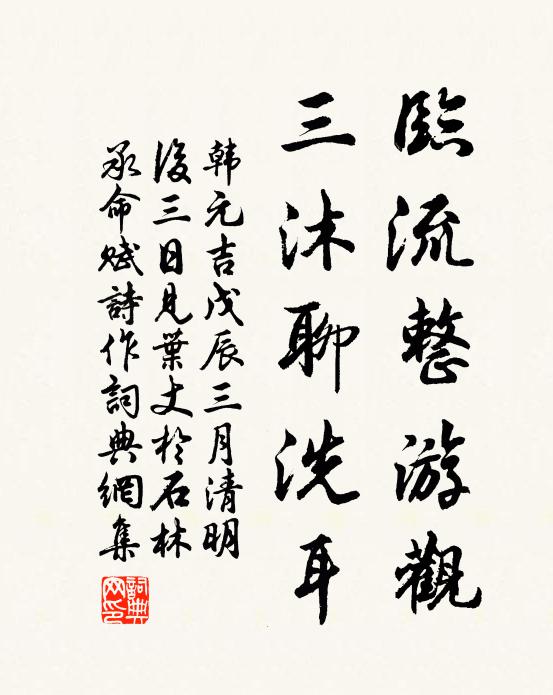 臨流整游觀
三沐聊洗耳
韩元吉戊辰三月清明
後三日見葉丈於石林
承命賦詩作詞典網集
詞典
网印